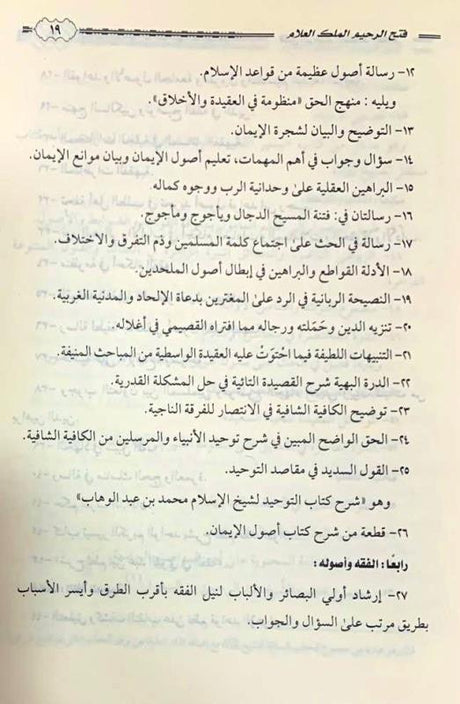 فتح الرحيم الملك العلام
١٩
١٢- رسالة أصول عظيمة من قواعد الإسلام.
ويليه : منهج الحق «منظومة في العقيدة والأخلاق».
١٣- التوضيح والبيان لشجرة الإيمان.
١٤- سؤال وجواب في أهم المهمات، تعليم أصول الإيمان وبيان موانع الإيمان.
١٥- البراهين العقلية على وحدانية الرب ووجوه كماله.
١٦- رسالتان في: فتنة المسيح الدجال ويأجوج ومأجوج.
١٧- رسالة في الحث على اجتماع كلمة المسلمين وذم التفرق والاختلاف.
١٨- الأدلة القواطع والبراهين في إبطال أصول الملحدين.
١٩- النصيحة الربانية في الرد على المغترين بدعاة الإلحاد والمدنية الغربية.
٢٠- تنزيه الدين وحَمَلته ورجاله مما افتراه القصيمي في أغلاله.
٢١- التنبيهات اللطيفة فيما احْتوَتْ عليه العقيدة الواسطية من المباحث المنيفة.
٢٢- الدرة البهية شرح القصيدة التائية في حل المشكلة القدرية.
٢٣- توضيح الكافية الشافية في الانتصار للفرقة الناجية.
٢٤- الحق الواضح المبين في شرح توحيد الأنبياء والمرسلين من الكافية الشافية.
٢٥- القول السديد في مقاصد التوحيد.
وهو «شرح كتاب التوحيد لشيخ الإسلام محمد بن عبد الوهاب»
٢٦- قطعة من شرح كتاب أصول الإيمان.
رابعًا: الفقه وأصوله:
٢٧- إرشاد أولي البصائر والألباب لنيل الفقه بأقرب الطرق وأيسر الأسباب
بطريق مرتب على السؤال والجواب.